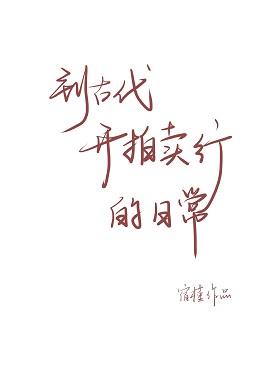 到古代
开拍卖行
的日常
宿桂作品